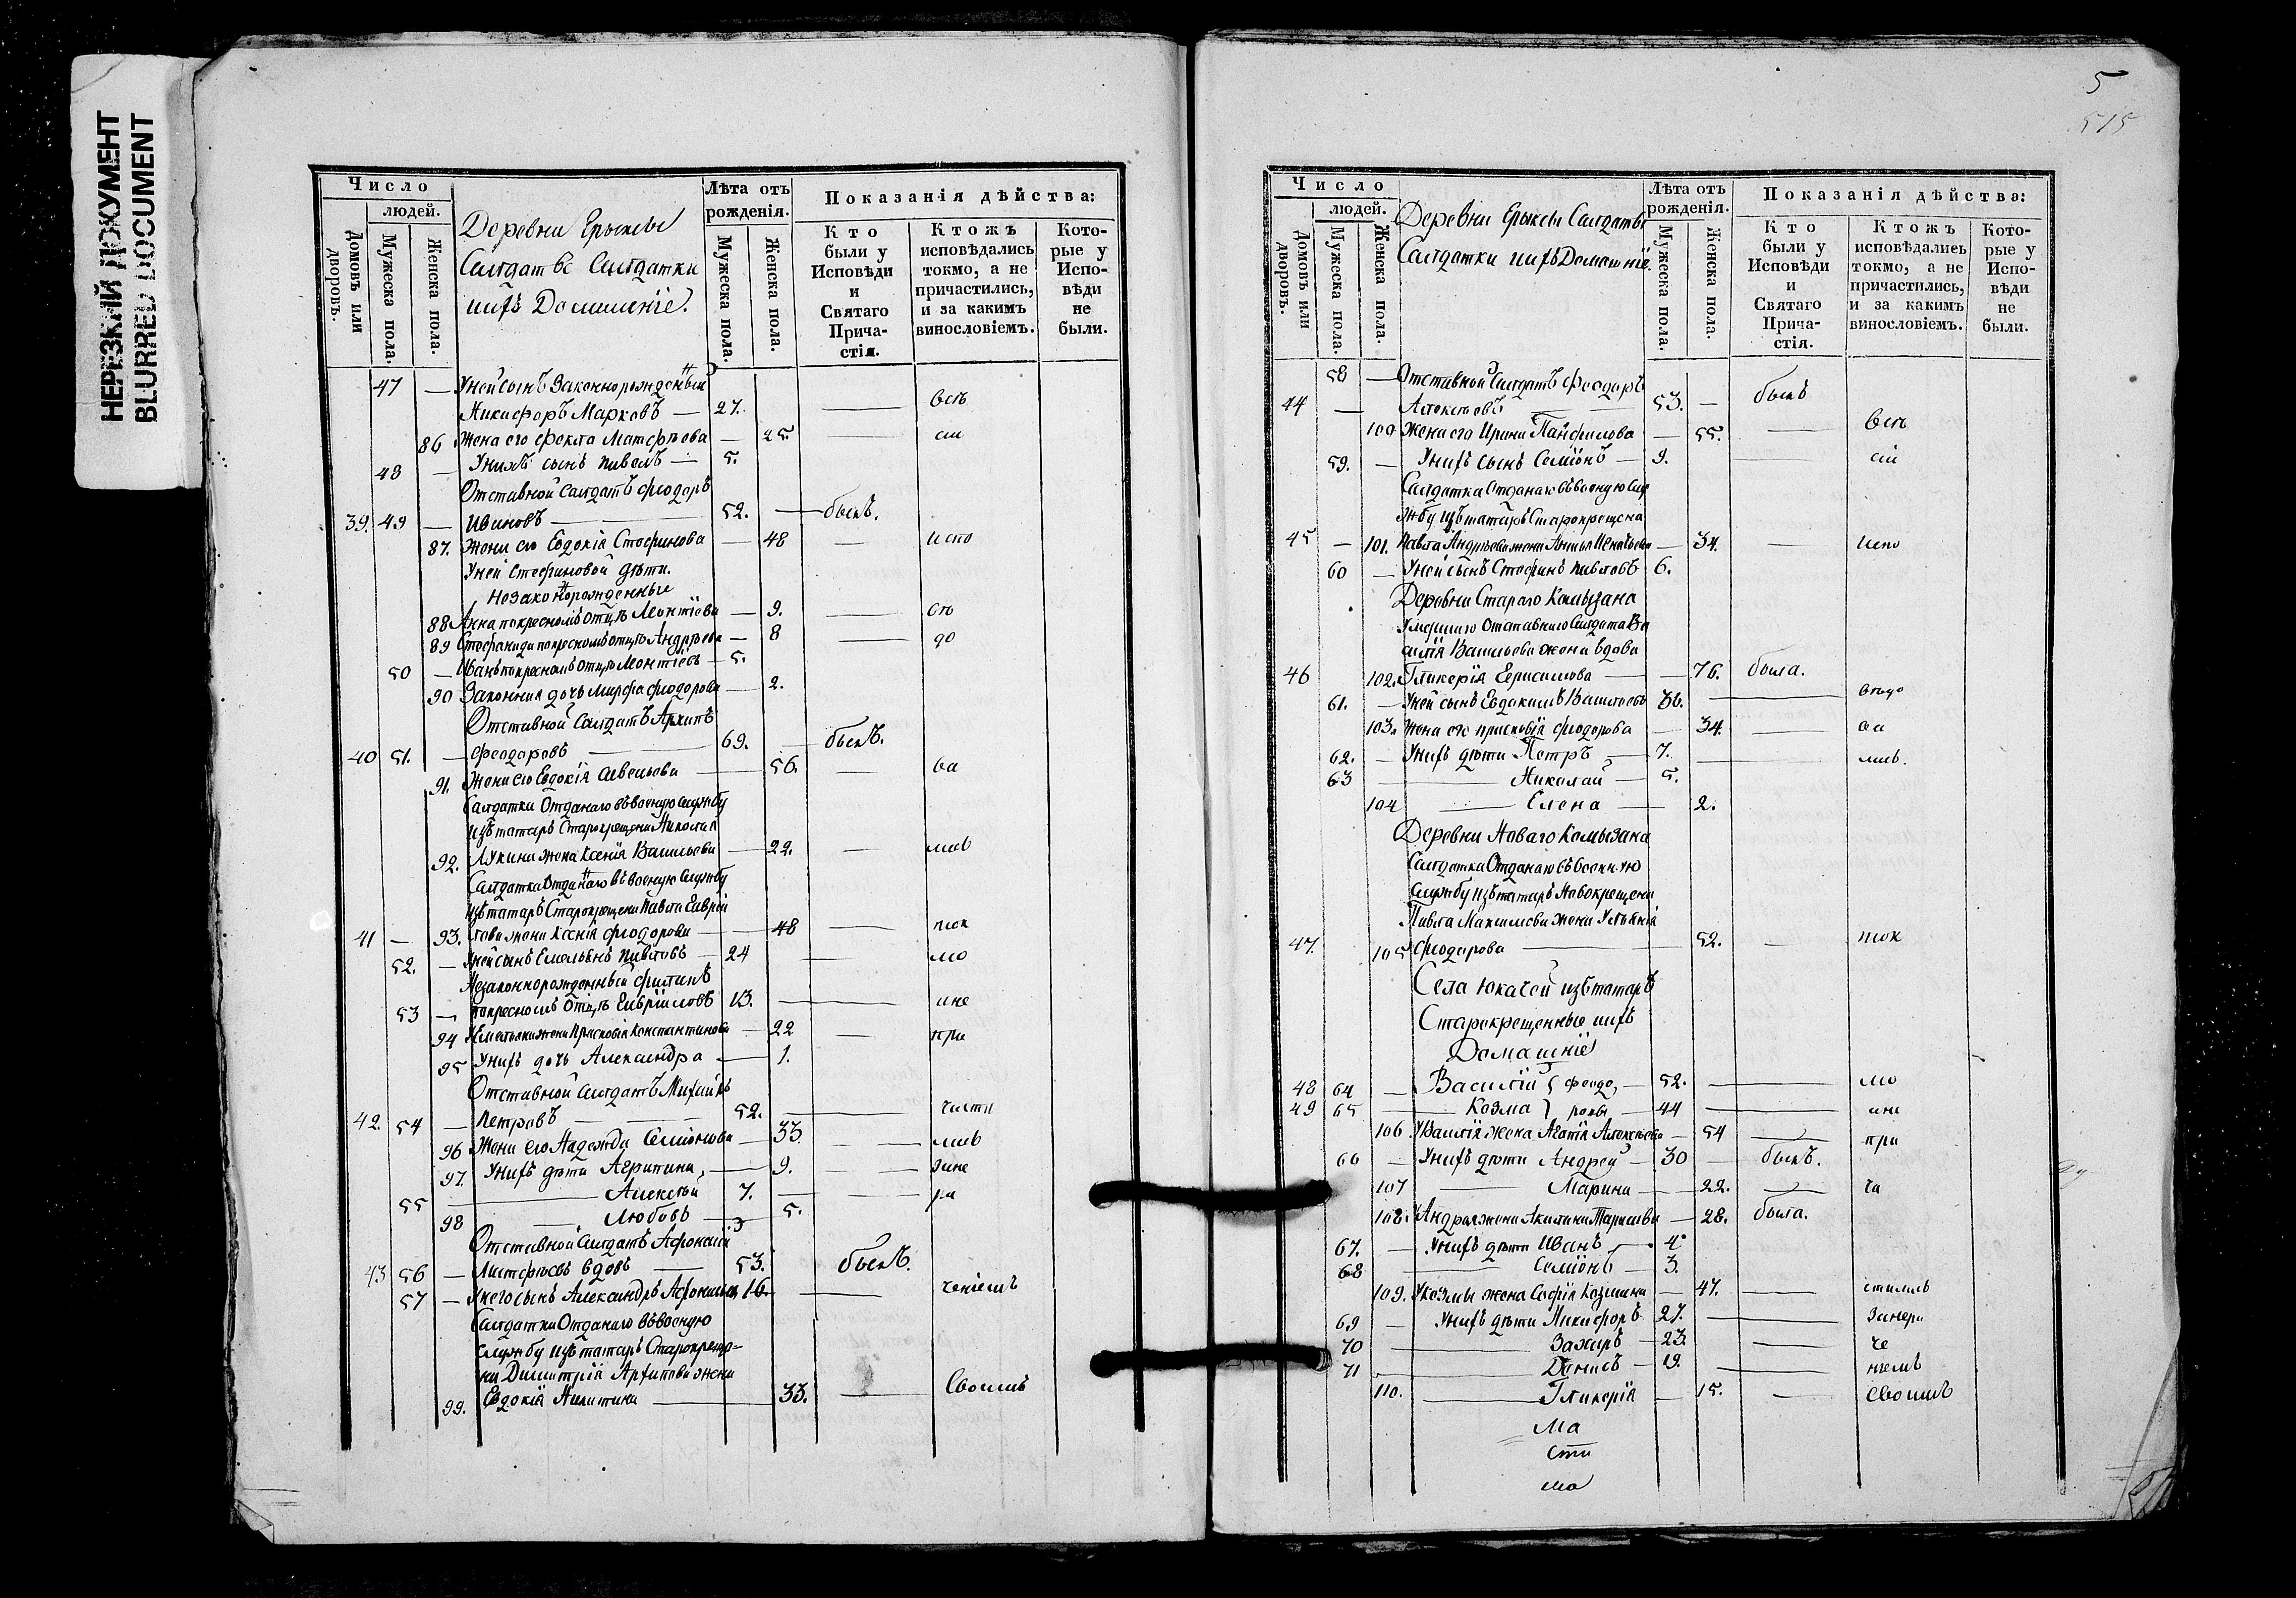 НЕРЕЗКИЙ ДОКУМЕНТ
BLURRED DOCUMENT
Число
людей.
Домовъ или дворовъ.
Мужеска пола.
Женска пола.
Деревни Ерыксы
Салдатъ Салдатки
ихъ Домашніе.
Лѣта отъ рожденія.
Мужеска пола.
Женска пола.
Показанія дѣйства:
Кто были у Исповѣди и Святаго Причастія.
Ктожъ исповѣдались токмо, а не причастились, и за какимъ винословіемъ.
Которые у Исповѣди не были.
47 — Уней сынъ Законнорожденный
Никифоръ Марковъ — 27. — всѣ
86 Жена его Фекла Матфѣева — 25. — сіи
48 — Унихъ сынъ Павелъ — 5.
Отставной Салдатъ Феодоръ
39. 49 — Ивановъ — 52. — былъ.
87. Жена его Евдокія Стефанова — 48 — испо
Уней Стефановой дѣти.
Незаконорожденные
88 Анна покресномъ отцѣ Леонтіева — 9. — вѣ
89 Стефанида покресномъ отцѣ Андрѣева — 8 — до
50 — Иванъ покресномъ отцѣ Леонтіевъ — 5.
90 Законная дочь Марфа Феодорова — 2.
Отставной Салдатъ Архипъ
40 51. — Феодоровъ — 69. — былъ.
91. Жена его Евдокія Савельева — 56. — ва
Салдатка Отданаго въ военую службу
изъ татаръ Старокрещена Николая
92. Лукина жена Ксенія Васильева — 22. — лись
Салдатка Отданаго въ военую службу
изъ татаръ Старокрещена Павла Гаврій
41 — 93. лова жена Ксенія Феодорова — 48 — ток
52. — Уней сынъ Емельянъ Павловъ — 24 — мо
Незаконнорожденный Филипъ
53 — покресномъ Отцѣ Гавріиловъ 13. — ане
94 Уемельяна жена Прасковія Константинова — 22 — при
95 Унихъ дочь Александра — 1.
Отставной Салдатъ Михаилъ
42. 54 — Петровъ — 52. — части
96 Жена его Надежда Семіонова — 33 — лись
97. Унихъ дѣти Агрипина, — 9. — зане
55 — Алексѣй 7. — ра
98 — Любовь — 5.
Отставной Салдатъ Афонасій
43 56 — Матфѣевъ вдовъ — 53. былъ.
57 — Унего сынъ Александръ Афонасьевъ 16. — ченіемъ
Салдатка Отданаго въ военую
службу изъ татаръ Старокреще=
на Димитрія Архипова жена
99. Евдокія Никитина — 33. — Своимъ
5
515
Число
людей.
Домовъ или дворовъ.
Мужеска пола.
Женска пола.
Деревни Ерыксы Салдаты
Салдатки ихъ Домашніе.
Лѣта отъ рожденія.
Мужеска пола.
Женска пола.
Показанія дѣйства:
Кто были у Исповѣди и Святаго Причастія.
Ктожъ исповѣдались токмо, а не причастились, и за какимъ винословіемъ.
Которые у Исповѣди не были.
58 — Отставной Салдатъ Феодоръ
44 — Алексѣевъ — 53. — былъ
100 Жена его Ирина Панфилова — 55. — всѣ
59. — Унихъ сынъ Семіонъ — 9. — сіи
Салдатка Отданаго въ военую слу
жбу изъ татаръ Старокрещена
45 — 101. Павла Андрѣева жена Анна Игнатьева — 34. — испо
60 — Уней сынъ Стефанъ Павловъ 6.
Деревни Стараго Комызана
Умершаго Отставнаго Салдата Ва
силія Васильева жена вдова
46 102. Гликерія Герасимова — 76. была.
61. — Уней сынъ Евдокимъ Васильевъ 36. — вѣдо
103. Жена его Прасковія Феодорова — 34. — ва
62. — Унихъ дѣти Петръ — 7. — лись.
63 — Николай — 5.
104 — Елена — 2.
Деревни Новаго Комызана
Салдатка Отданаго въ военную
службу изъ татаръ Новокрещена
Павла Максимова жена Ульянія
47. 105 Феодорова — 52. — ток
Села Юкачей изъ татаръ
Старокрещенные ихъ
Домашніе
48 64 — Василій } Феодо, — 52. — мо
49 65 — Козма } ровы — 44 — ане
106. Увасилія жена Агафія Алексѣева — 54 — при
66 — Унихъ дѣти Андрей — 30 — былъ.
107 — Марина — 22. — ча
108. Уандрея жена Акилина Тарасова — 28. была.
67. — Унихъ дѣти Иванъ — 4.
68 — Семіонъ — 3.
109. Укозмы жена Софія Козмина — 47. — стились
69 — Унихъ дѣти Никифоръ 27. — Занера
70 — Захаръ — 23. — че
71 — Данилъ — 19. — ніемъ
110. — Гликерія — 15. — своимъ
Ма
сти
ма